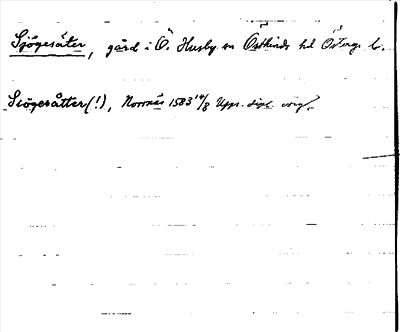 Sjögesäter, gård i Ö. Husby sn Östkinds hd Österg. l.
Siögesåtter (!), Norrnäs 1583 14/8 Upps. dipl.